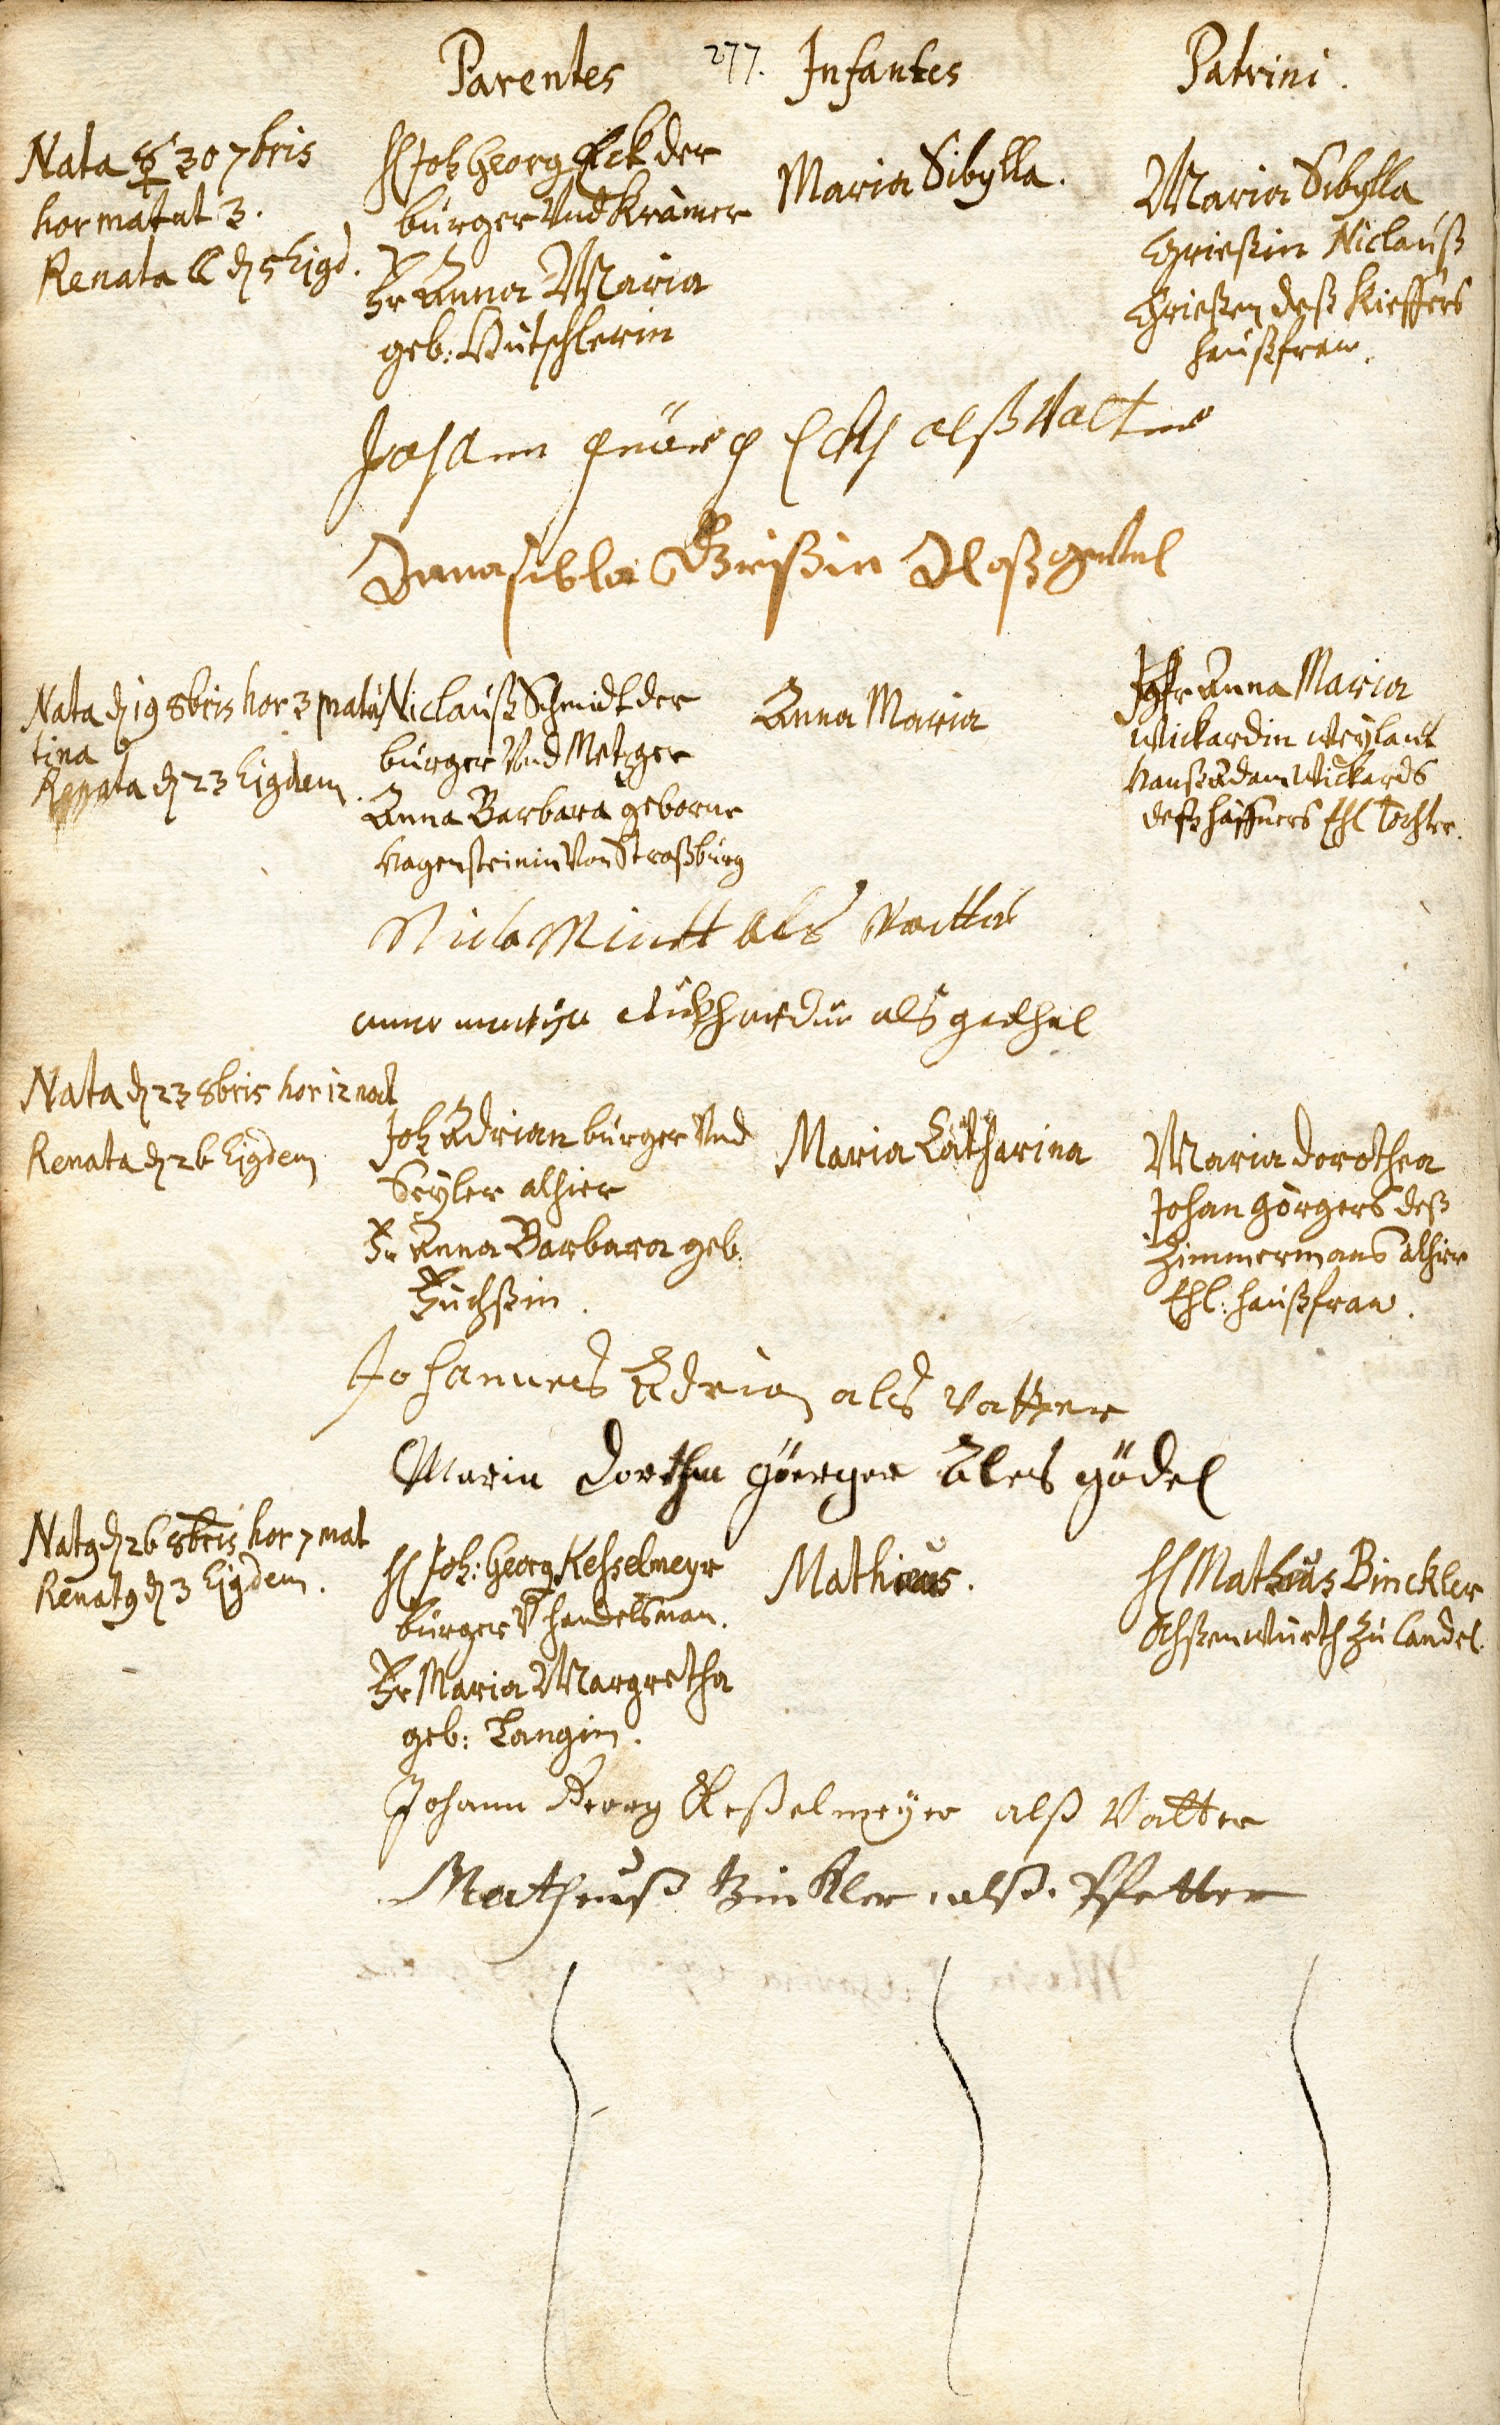 277.
Parentes Infantes Patrini.
Nata 30 7bris
hor matut 3.
Renata 5 Ejgd.
H Joh Georg Eck der
burger Und Krämer
Fr Anna Maria
geb: Bütschlerin
Maria Sibylla.
Maria Sibylla
Grießin Niclauß
Grießen deß Kieffers
haußfraw.
Johann Eck alß Vatter
Anna sibla Grißin Alß gettel
Nata d 19 8bris hor 3 matu
tina
Renata d 23 Ejgdem.
Niclauß Schmidt der
burger Und Metzger
Anna Barbara geborne
Hagensteinin Von Straßburg
Anna Maria
Jgfr Anna Maria
Wickardin weylant
Hanß Adam Wickards
deß haffners Ehl Tochter.
als Vatter
als gedhel
Nata d 23 8bris hor 12 noct
Renata d 26 Ejgdem
Joh Adrian burger Und
Seyler alhier
Fr Anna Barbara geb:
Fuchßin.
Maria Catharina
Maria Dorothea
Johan Görgers deß
Zimmermans alhier
Ehl: haußfraw.
Johannes Adrian als Vatter
Maria Dorthea Göerger Ales gödel
Nat9 d 26 8bris hor 7 mat
Renat9 d 3 Ejgdem.
H Joh: Georg Kesselmeyr
burger V handelsman.
Fr Maria Margretha
geb: Langin.
Matheus.
H Matheus Binckler
Ochßenwürth zu Landel.
Johann Georg Keßelmeyer alß Vatter
Matheuß Binkler. alß. Pfetter